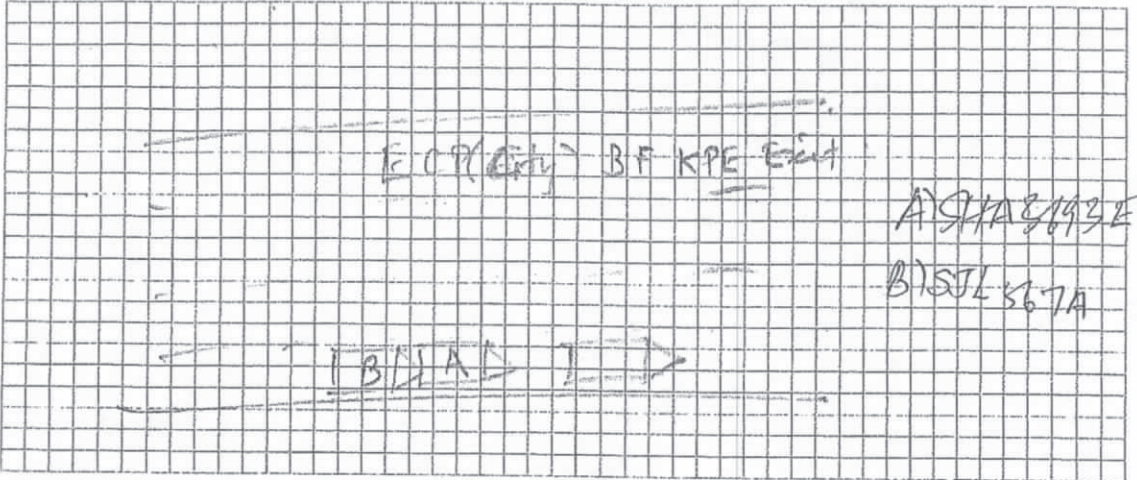 ECP(City) BF KPE Exit
A) SHA8693E
B) SJL 567A
B A